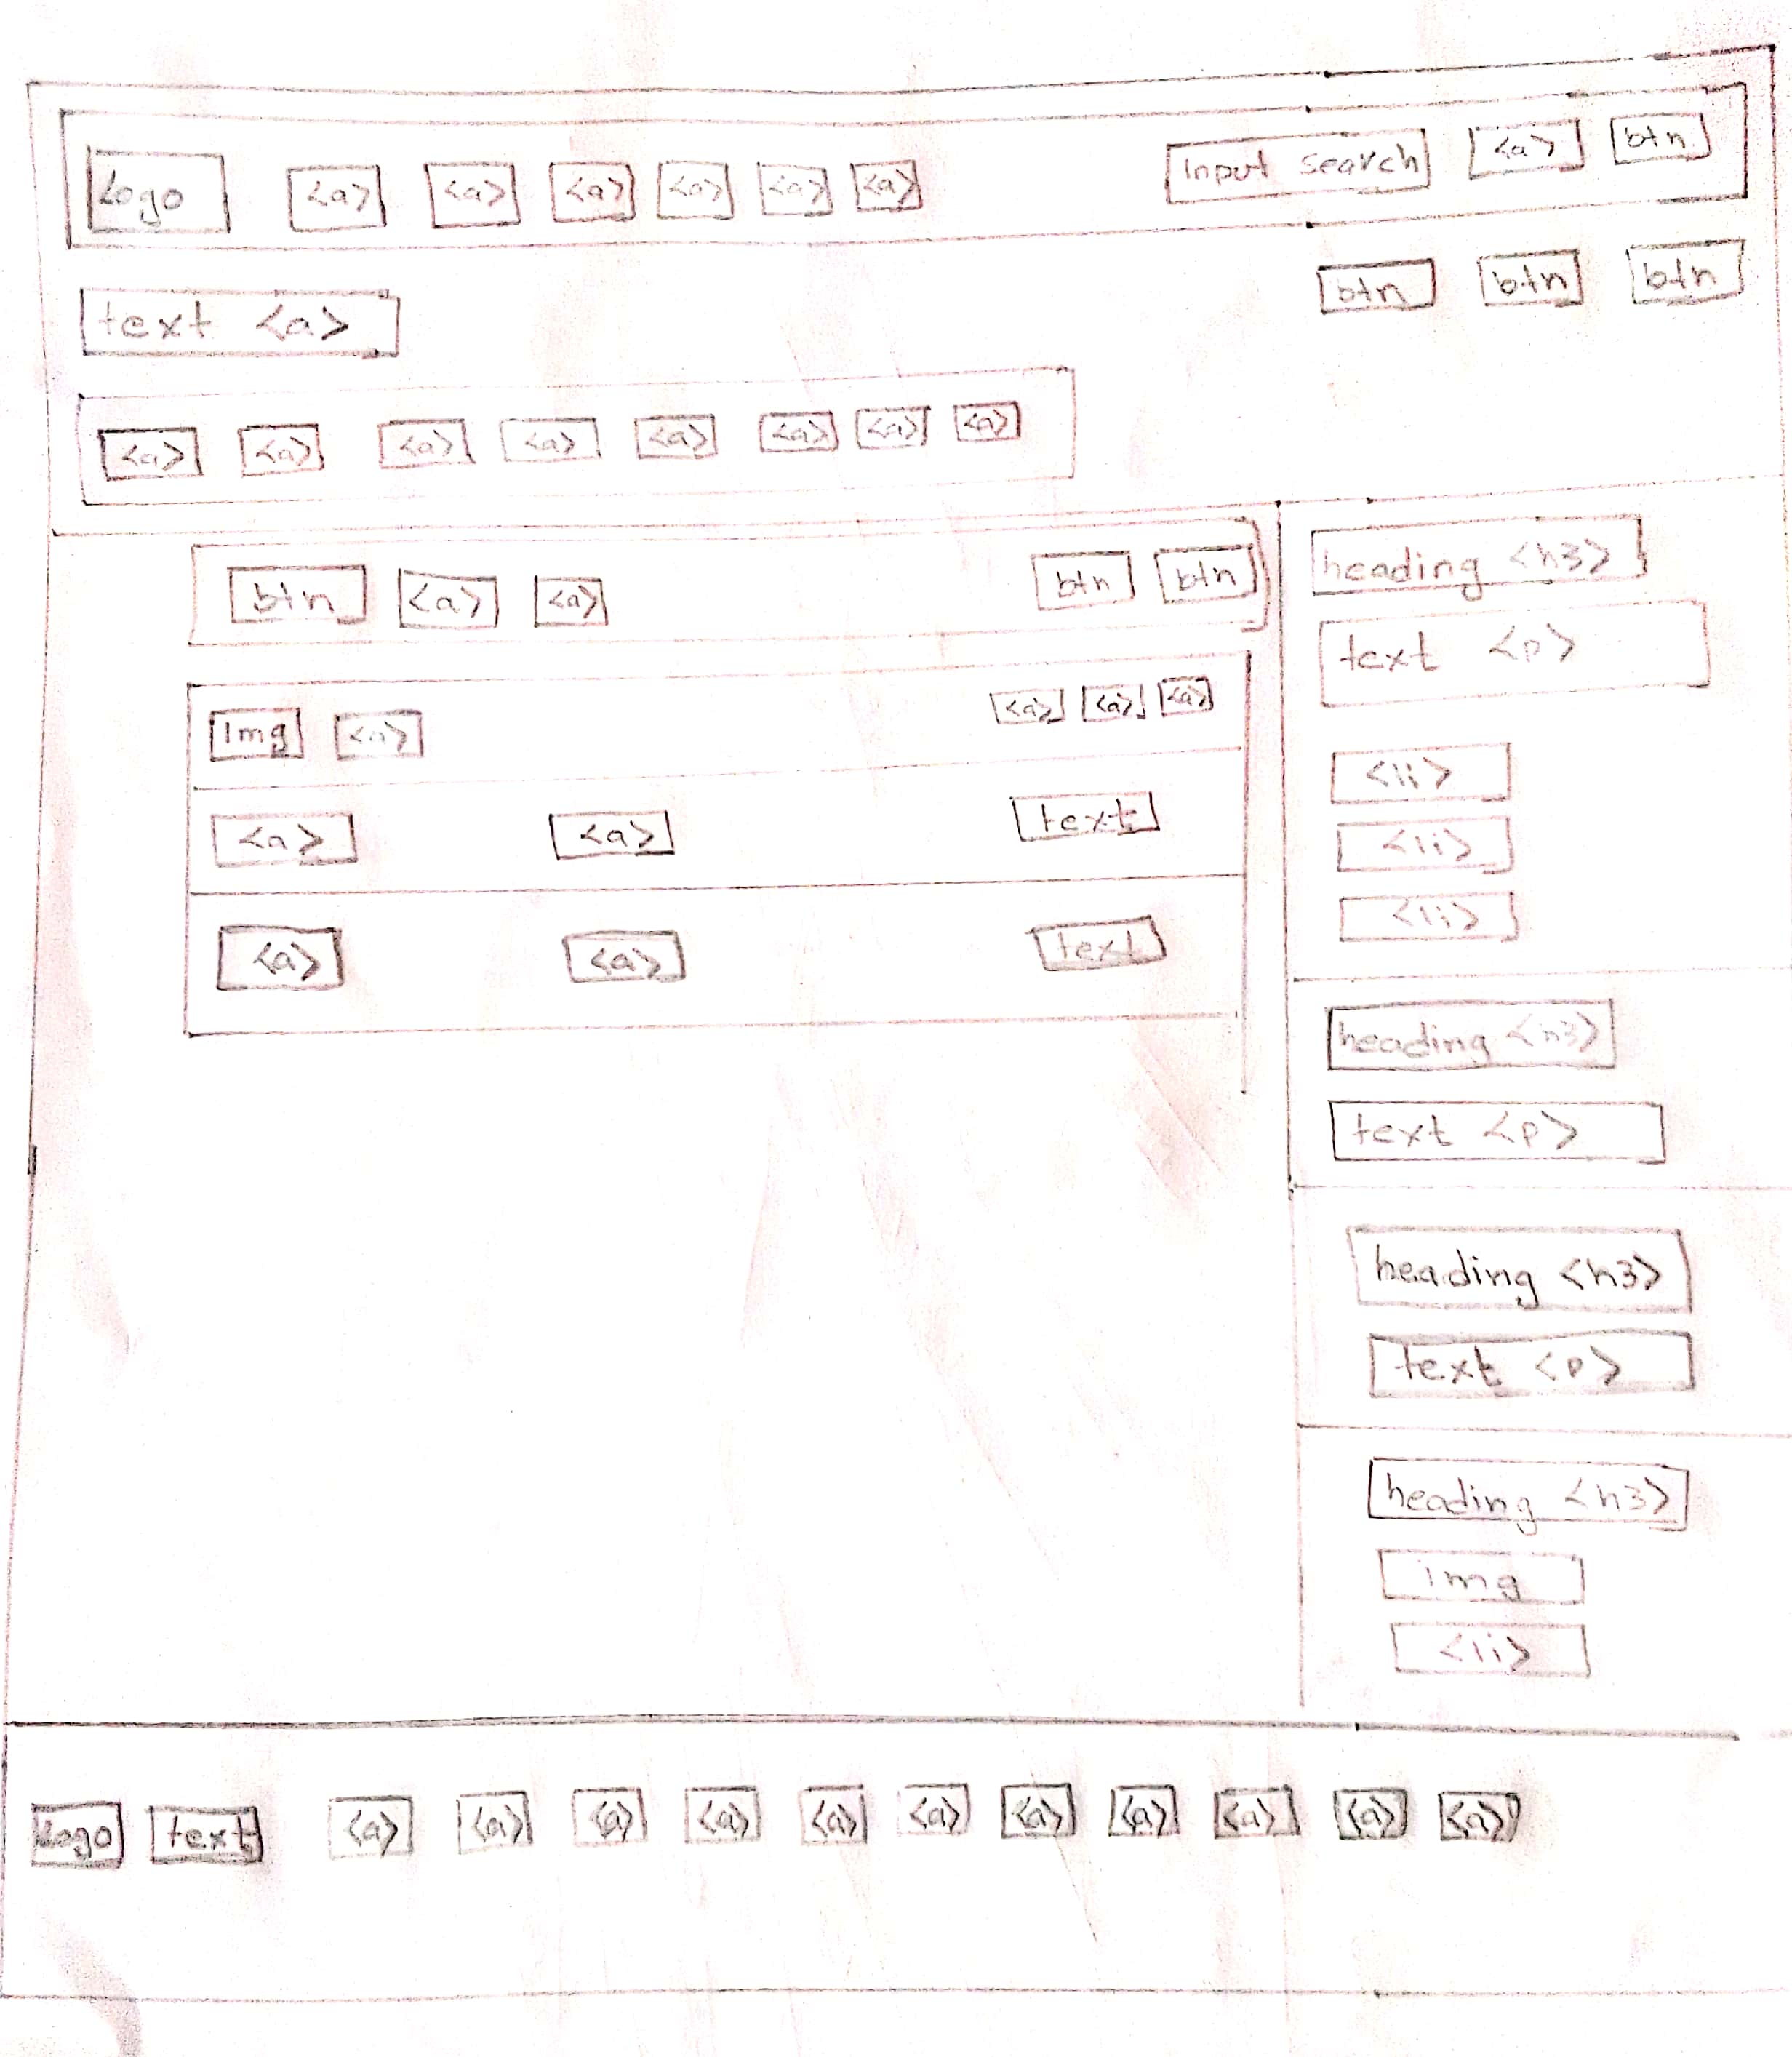 Logo <a> <a> <a> <a> <a> <a> Input search <a> btn
text <a> btn btn btn
<a> <a> <a> <a> <a> <a> <a> <a>
btn <a> <a> btn btn
Img <a> <a> <a> <a>
<a> <a> text
<a> <a> text
heading <h3>
text <p>
<li>
<li>
<li>
heading <h3>
text <p>
heading <h3>
text <p>
heading <h3>
img
<li>
Logo text <a> <a> <a> <a> <a> <a> <a> <a> <a> <a> <a>